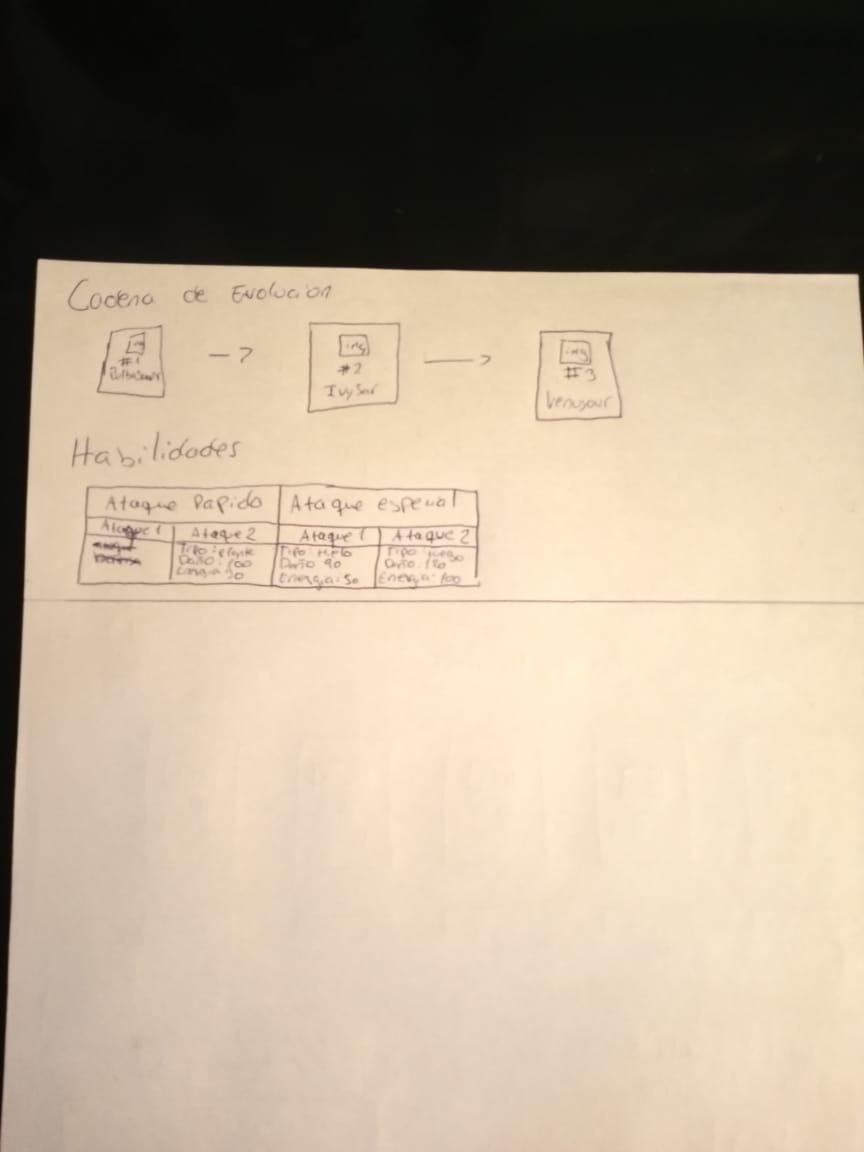 Cadena de Evolucion
img
#1
Bulbasaur
img
#2
Ivysar
img
#3
Venusaur
Habilidades
Ataque Rapido
Ataque especial
Ataque 1
Ataque 2
Ataque 1
Ataque 2
Tipo: plante
Daño: 100
Energia
30
Tipo: Hielo
Daño 90
Energia: 50
Tipo: fuego
Daño: 120
Energia: 100